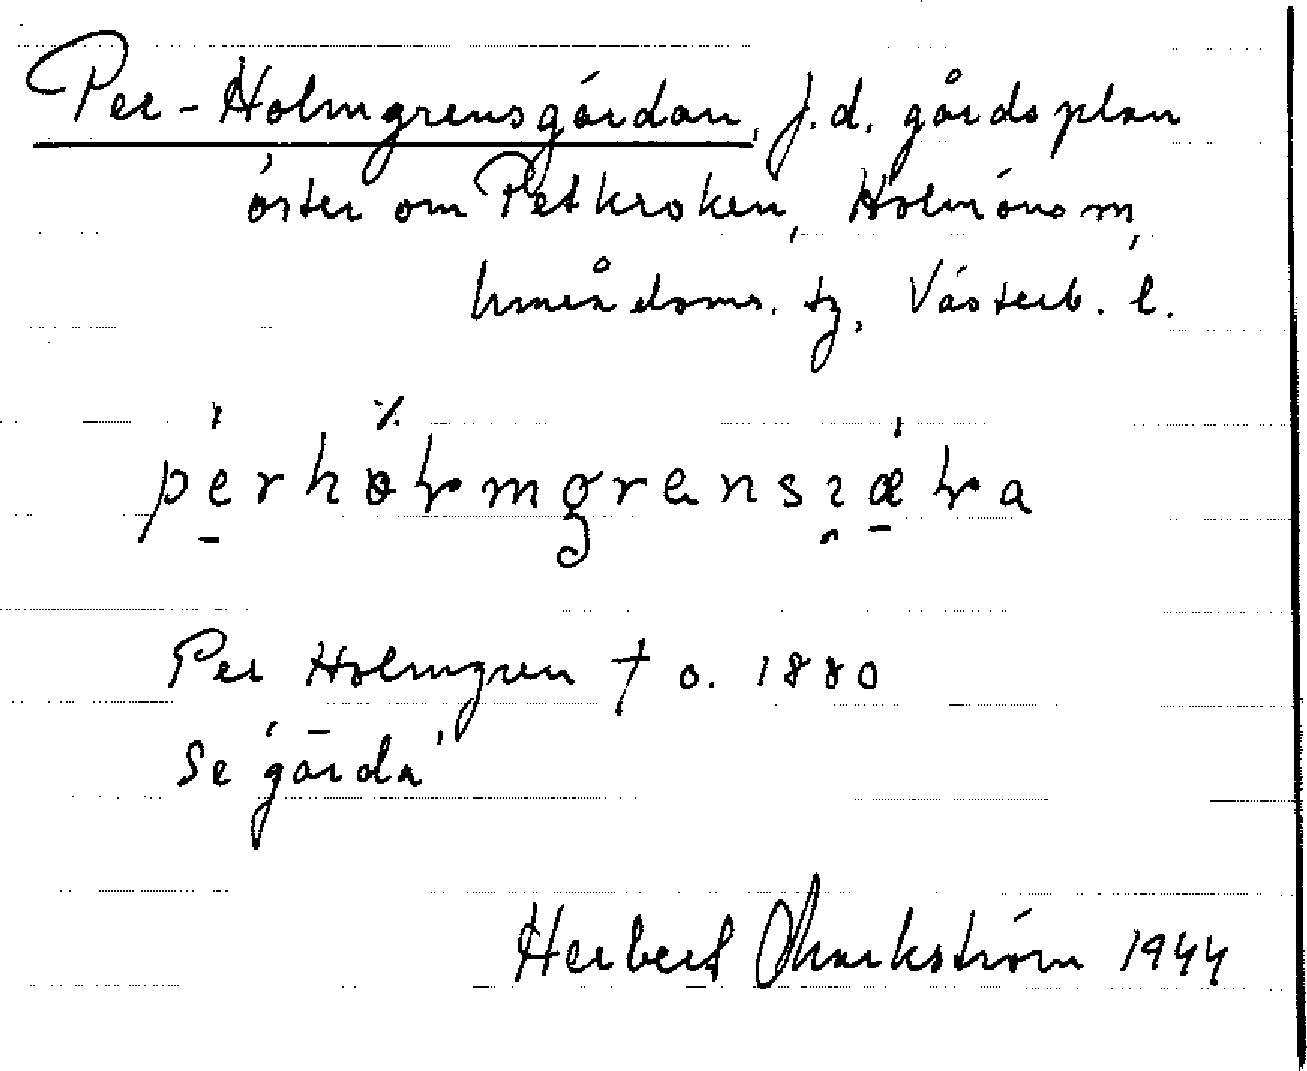 Per-Holmgrensgärdan, f.d. gårdsplan
öster om Petkroken, Holmöns m,
Umeå doms. tg, Västerb. l.
Per Holmgren † o. 1880
Se gärda
Herbert Markström 1944